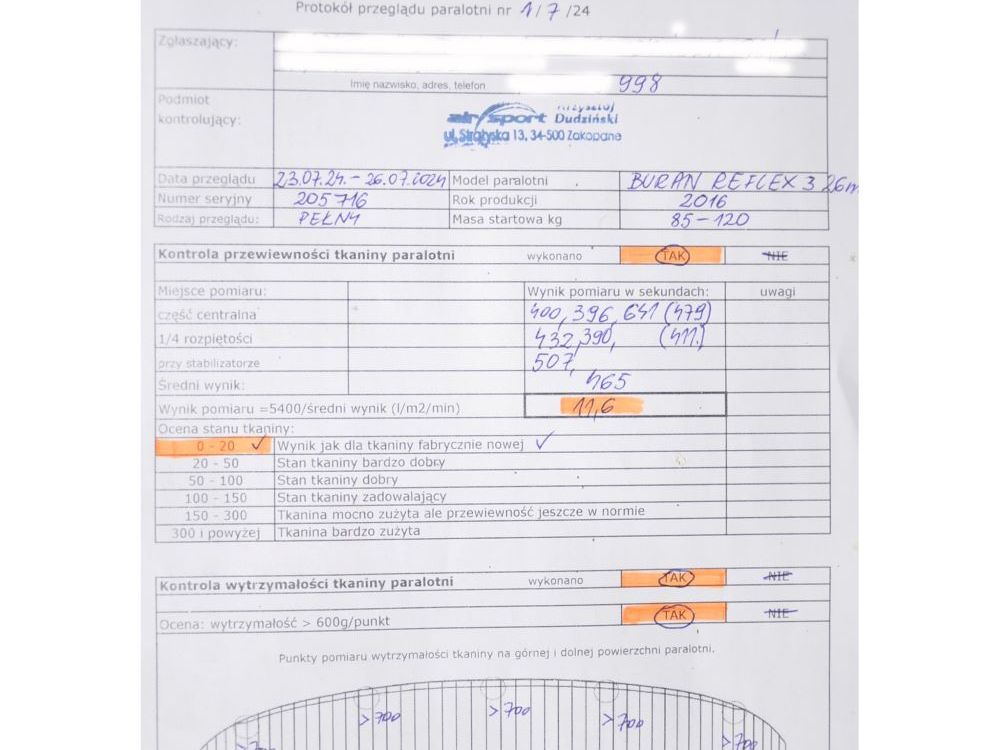 Protokół przeglądu paralotni nr 1/7/24
Zgłaszający:
Imię nazwisko, adres, telefon 998
Podmiot
kontrolujący:
air sport Dudziński
ul. Strążyska 13, 34-500 Zakopane
Data przeglądu 23.07.24. - 26.07.2024 Model paralotni BURAN REFLEX 3 26m
Numer seryjny 205716 Rok produkcji 2016
Rodzaj przeglądu: PEŁNY Masa startowa kg 85-120
Kontrola przewiewności tkaniny paralotni wykonano TAK NIE
Miejsce pomiaru: Wynik pomiaru w sekundach: uwagi
część centralna 400, 396, 641 (479)
1/4 rozpiętości 432, 390, (411.)
przy stabilizatorze 507,
Średni wynik: 465
Wynik pomiaru =5400/średni wynik (l/m2/min) 11,6
Ocena stanu tkaniny:
0 - 20 ✓ Wynik jak dla tkaniny fabrycznie nowej ✓
20 - 50 Stan tkaniny bardzo dobry
50 - 100 Stan tkaniny dobry
100 - 150 Stan tkaniny zadowalający
150 - 300 Tkanina mocno zużyta ale przewiewność jeszcze w normie
300 i powyżej Tkanina bardzo zużyta
Kontrola wytrzymałości tkaniny paralotni wykonano TAK NIE
Ocena: wytrzymałość > 600g/punkt TAK NIE
Punkty pomiaru wytrzymałości tkaniny na górnej i dolnej powierzchni paralotni.
>700 >700 >700
>700